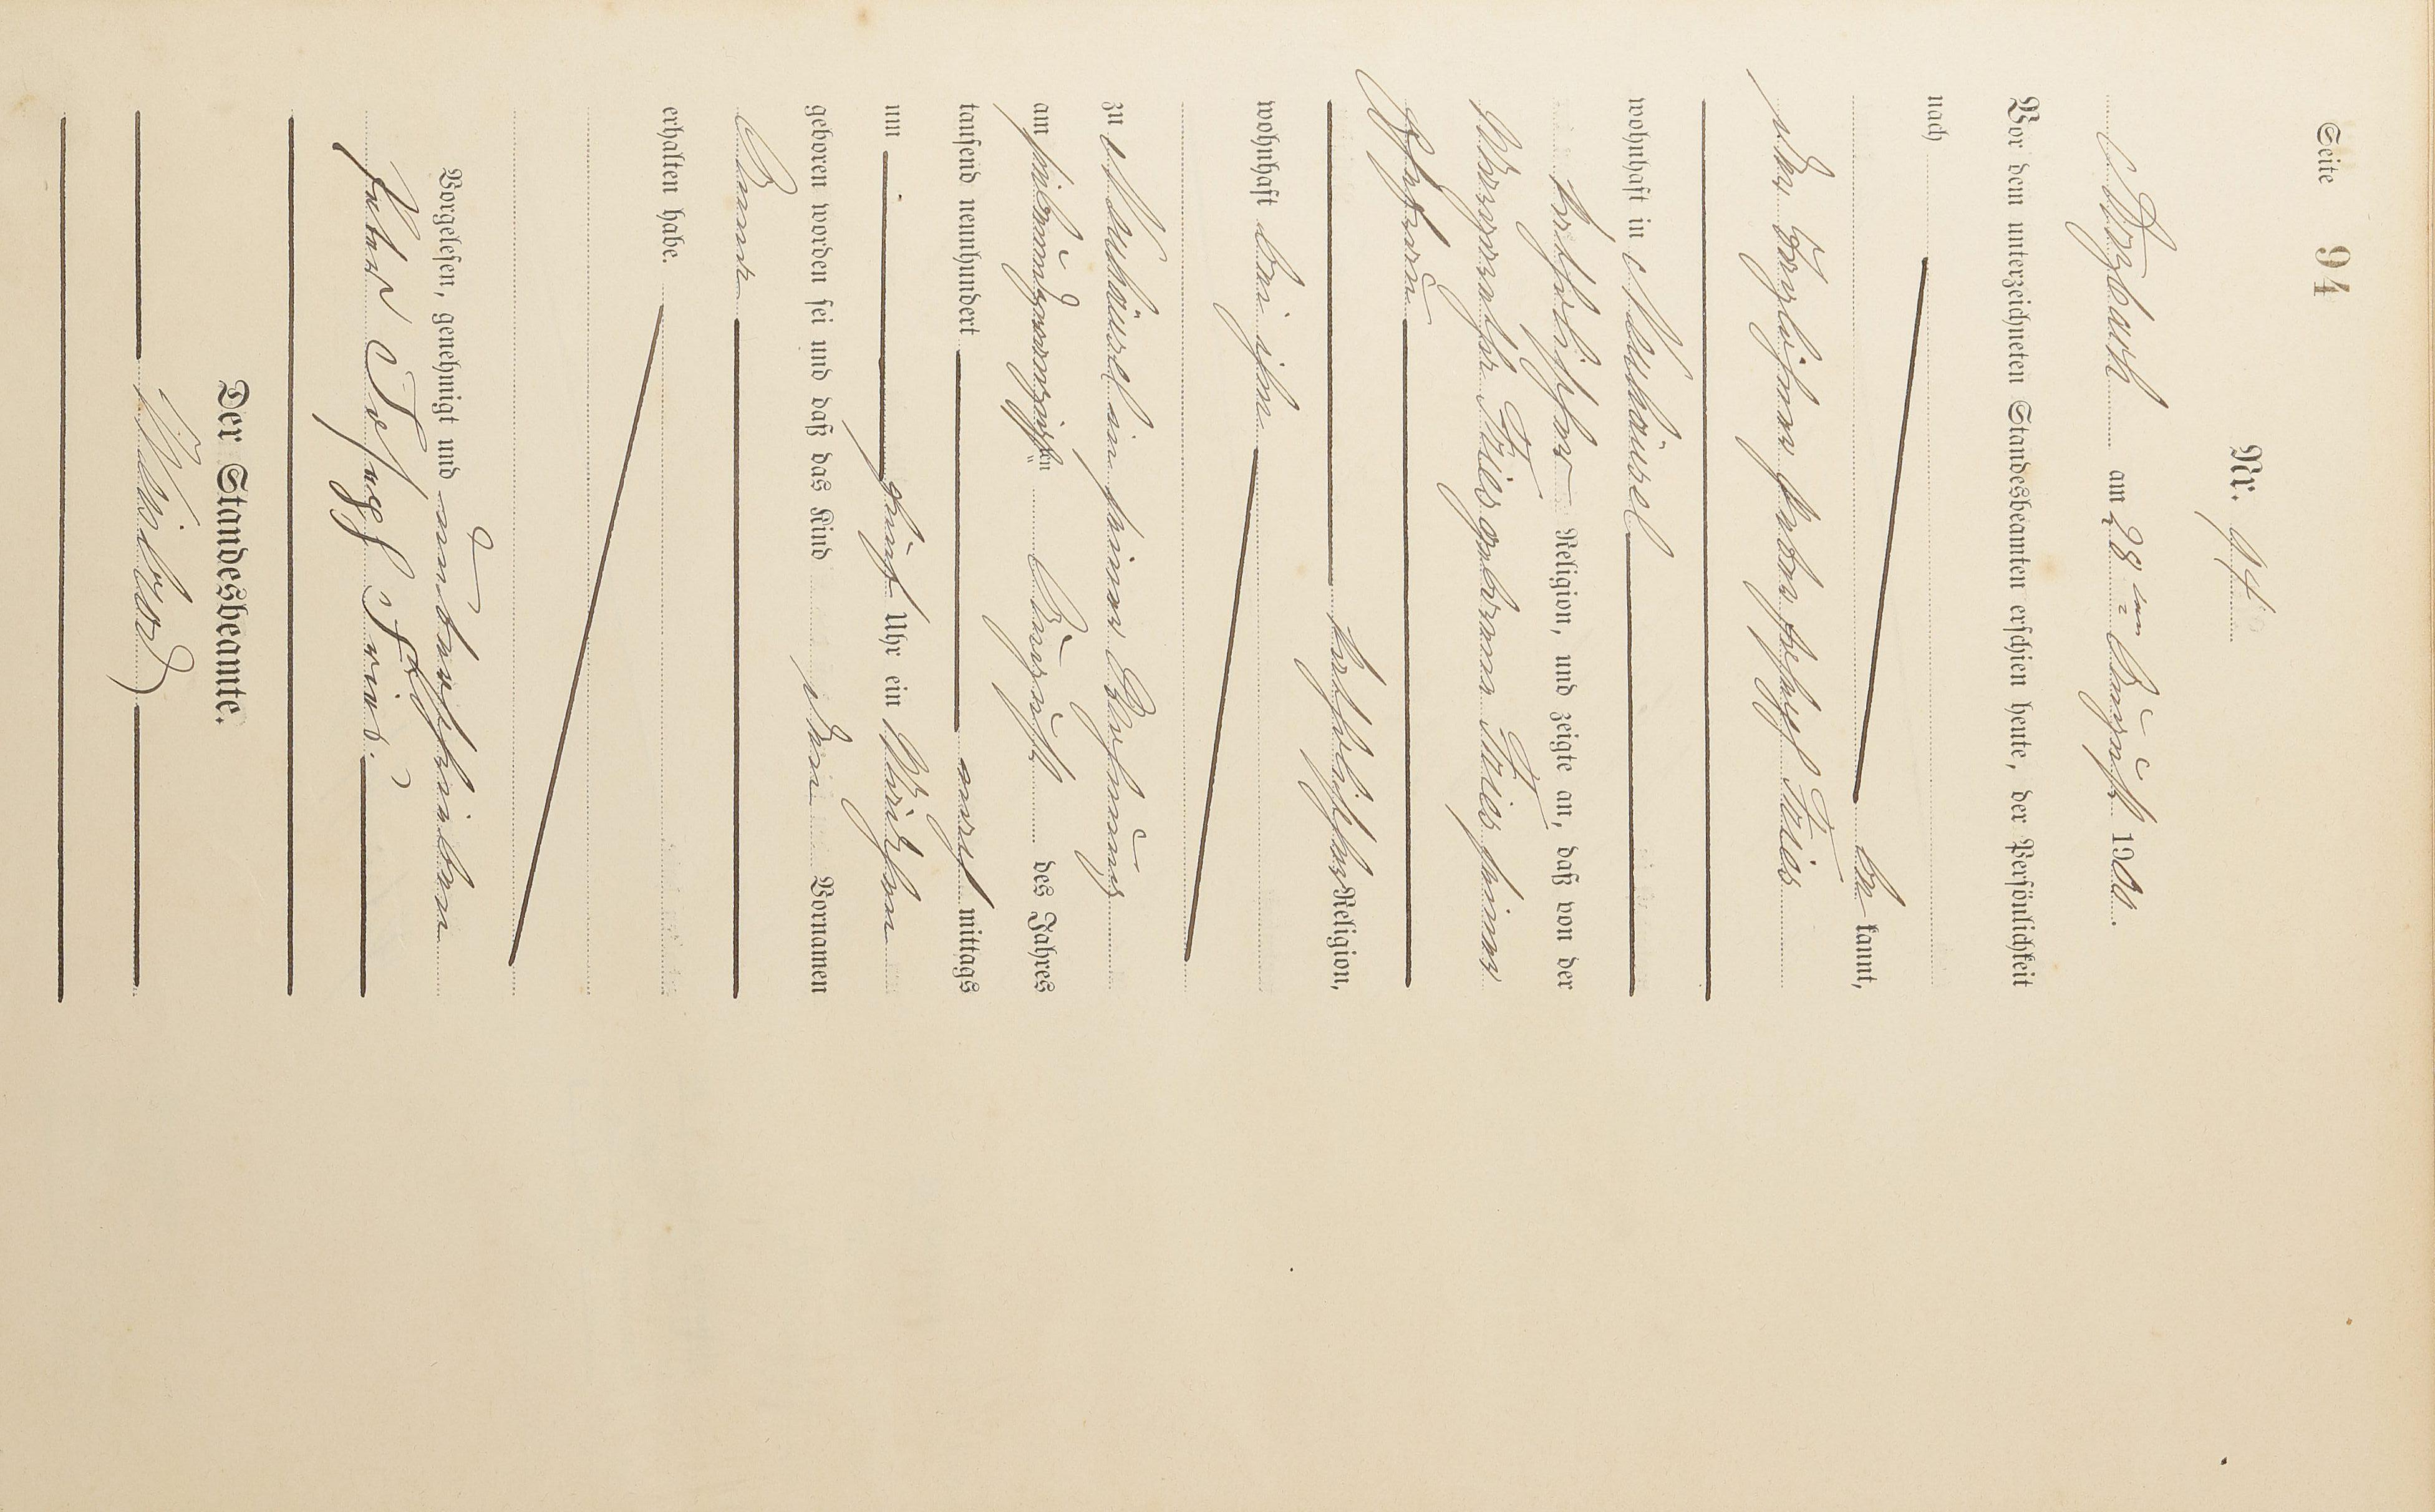 Seite 94
Nr. 94
am 28ten August 1900.
Vor dem unterzeichneten Standesbeamten erschien heute, der Persönlichkeit
nach
be kannt,
der Taglöhner Peter Joseph Fries
wohnhaft in Neuhäusel
katholischer Religion, und zeigte an, daß von der
Margaretha Fries geborenen Fries seiner
Ehefrau
katholischer Religion,
wohnhaft bei ihm
zu Neuhäusel in seiner Wohnung
am siebenundzwanzigsten August des Jahres
tausend neunhundert nach mittags
um fünf Uhr ein Mädchen
geboren worden sei und daß das Kind den Vornamen
Anna
erhalten habe.
Vorgelesen, genehmigt und unterschrieben
Peter Joseph Fries.
Der Standesbeamte.